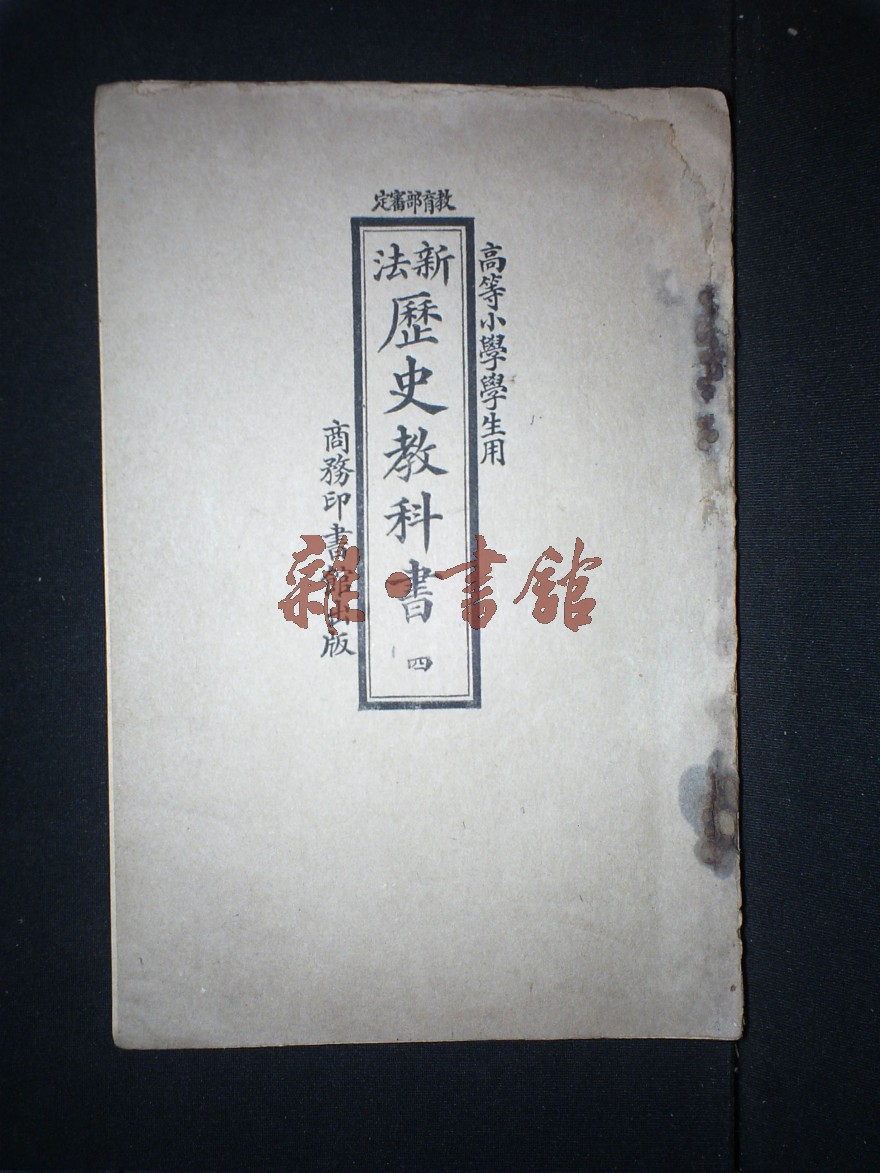 教育部審定
高等小學學生用
新法
歷史教科書 四
商務印書館出版
雜·書館